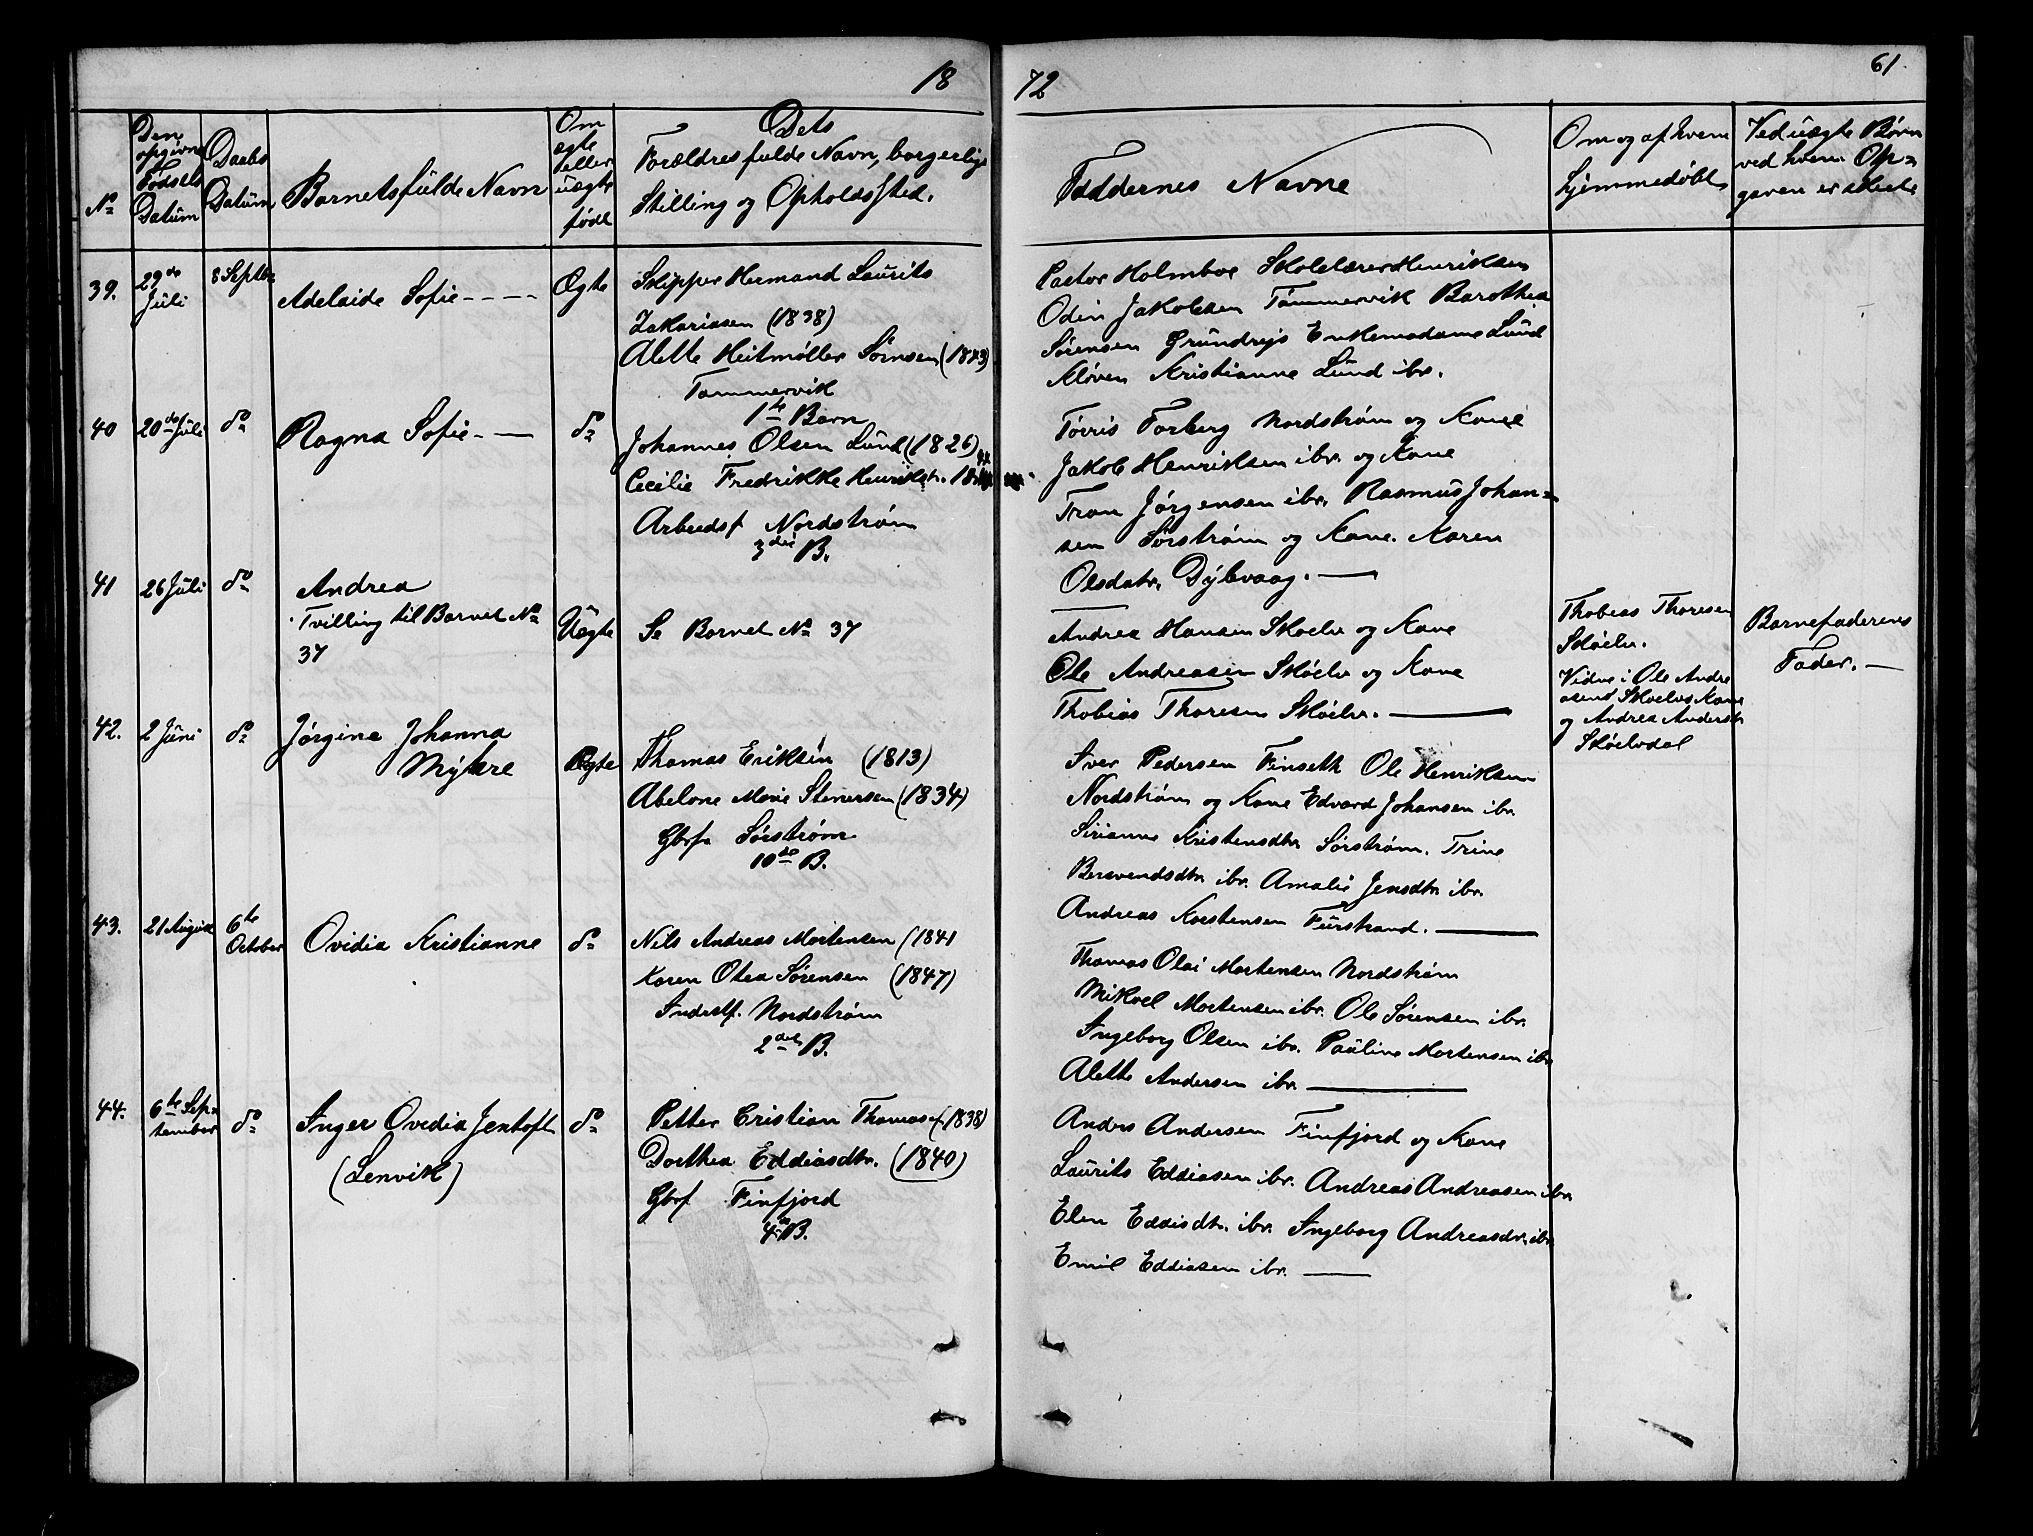 18
72
61
No
Den opgivne Fødsels Datum
Daabs Datum
Barnets fulde Navn
Om ægte eller uægte født
Dets
Forældres fulde Navn, borgerlige
Stilling og Opholdssted.
Faddernes Navne
Om og af hvem
hjemmedøbt
Ved uægte Børn
ved hvem Op=
gaven er skeet
39.
29de Juli
8 Septbr
Adelaide Sofie
Ægte
Skipper Hermand Laurits
Zakariasen (1838)
Alette Heitmøller Sørnsen (1843)
Tømmervik
1te Barn
Pastor Holmboe Skolelærer Henriksen
Odin Jakobsen Tømmervik Barothea
Sørensen Grundrejs Enkemadame Lund
Kløven Kristianne Lund ibr.
40
20de Juli
do
Ragna Sofie
do
Johannes Olsen Lund (1826)
Cecilie Fredrikke Henrikstr. 18
Arbeidsf Nordstrøm
3die B.
Tørris Forberg Nordstrøm og Kone
Jakob Henriksen ibr. og Kone
Tron Jørgensen ibr. Rasmus Johan=
sen Sørstrøm og Kone. Karen
Olsdatr. Dybvaag.
41
26 Juli
do
Andrea
Tvilling til Barnet No
37
Uægte
Se Barnet No 37
Andrea Hansen Skoelv og Kone
Ole Andreasen Skøelv og Kone
Thobias Thoresen Skøelv.
Thobias Thoresen
Skøelv.
Vidne i Ole Andre
asens Skoelvs Kone
og Andrea Anderstr
Skøelvdal
Barnefaderens
Fader.
42.
2 Juni
do
Jørgine Johanna
Myhre
Ægte
Thomas Eriksen (1813)
Abelone Marie Stenersen (1834)
Gbrf. Sørstrøm
10de B.
Iver Pedersen Finseth Ole Henriksen
Nordstrøm og Kone Edvard Johansen ibr.
Sirianne Kristensdtr Sørstrøm. Trine
Bersvendsdtr. ibr. Amalie Jensdtr. ibr.
Andreas Korstensen Furstrand.
43.
21 August
6te October
Ovidia Kristianne
do
Nils Andreas Mortensen (1841
Karen Otea Sørensen (1847)
Inderstf. Nordstrøm
2det B.
Thomas Olai Mortensen Nordstrøm
Mikael Mortensen ibr. Ole Sørensen ibr.
Ingeborg Olsen ibr. Pauline Mortensen ibr
Alette Andersen ibr.
44.
6te Sep=
tember
do
Inger Ovidia Jentoft
(Lenvik)
do
Petter Cristian Thomas (1838)
Dorthea Eddiasdtr. (1840)
Gbrf Finfjord
4de B.
Anders Andersen Finfjord og Kone
Laurits Eddiasen ibr. Andreas Andreasen ibr
Elen Eddisdtr. ibr. Ingeborg Andreasdr. ibr
Emil Eddiasen ibr.